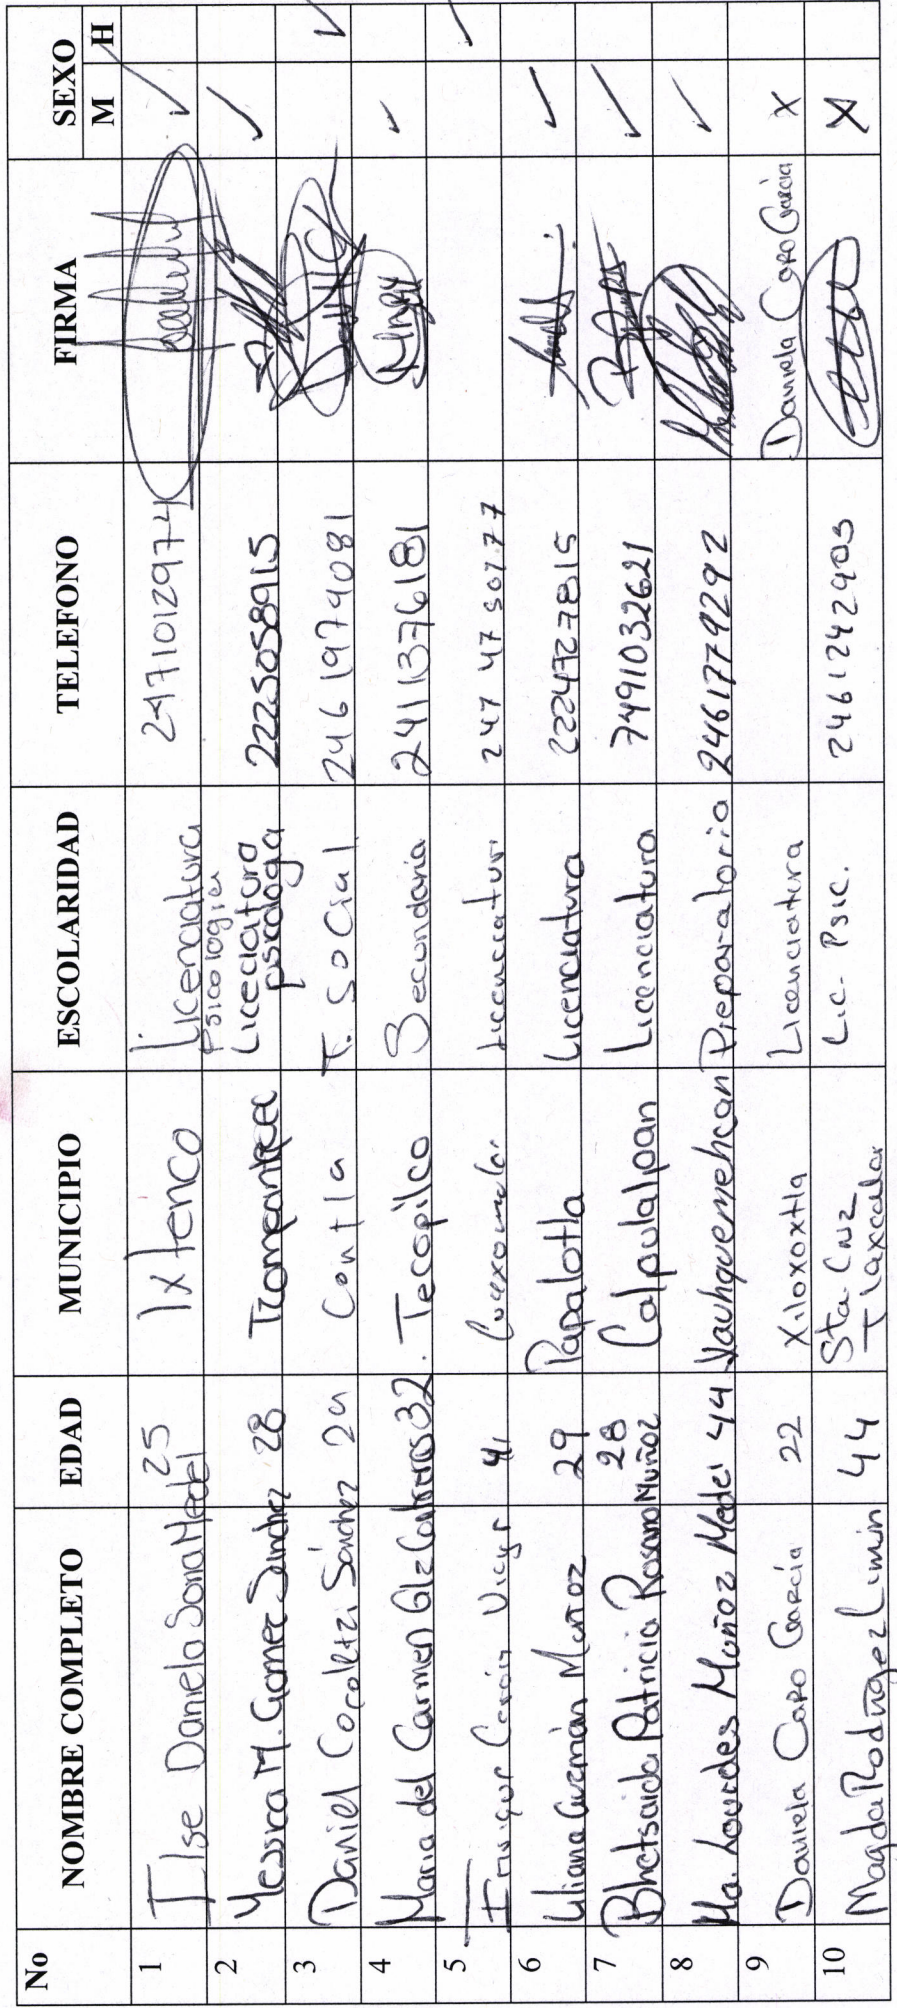 No NOMBRE COMPLETO EDAD MUNICIPIO ESCOLARIDAD TELEFONO FIRMA SEXO
M H
1 Ilse Daniela Soria Medel 25 Ixtenco Licenciatura Psicología 2471012974 ✓
2 Yessica M. Gomez Sánchez 28 Liceciatura psicologa 2225058915 ✓
3 Daniel Cocoletzi Sánchez 29 Contla T. Social 2461974081 ✓
4 Maria del Carmen Glz 32. Tecopilco Secundaria 2411376181 ✓
5 41 247 47 50777 ✓
6 Liliana Guzmán Muñoz 29 Papalotla Licenciatura 2224727815 ✓
7 Bhetsaida Patricia Rosano Muñoz 28 Calpulalpan Licenciatura 7491032621 ✓
8 Ma. Lourdes Muñoz Medel 44 Yauhquemehcan Preparatoria 2461779292 ✓
9 Daniela Caro García 22 Xiloxoxtla Licenciatura Daniela Caro García X
10 Magda Rodríguez Limón 44 Sta Cruz Tlaxcala Lic. Psic. 2461242903 X